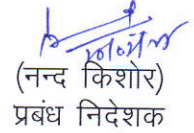 (नन्द किशोर)
प्रबंध निदेशक